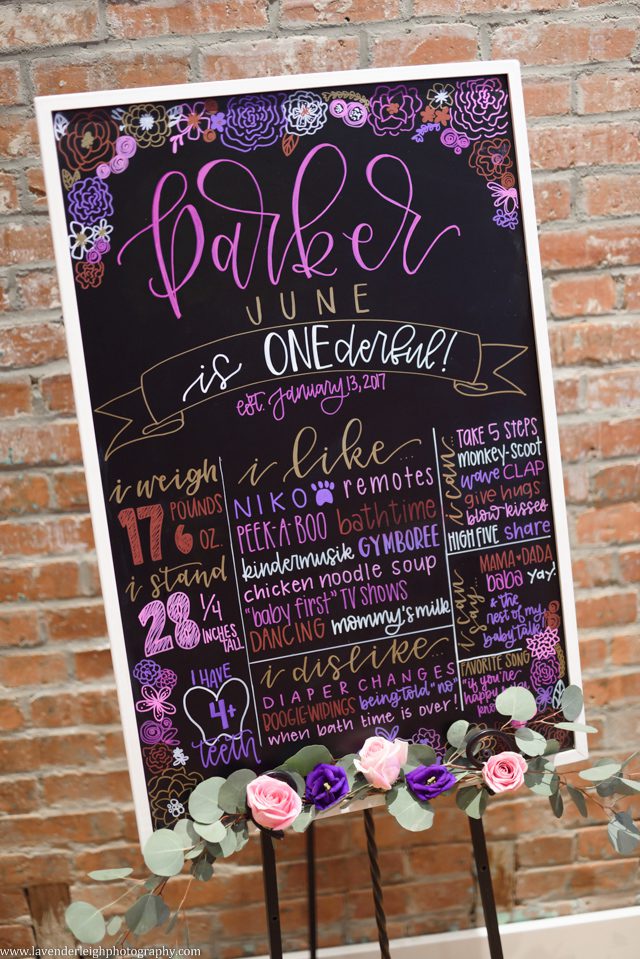 parker
JUNE
is ONEderful!
est. January 13, 2017
i weigh
17 POUNDS
6 OZ.
i stand
28 1/4
INCHES
TALL
I HAVE
4+
teeth
i like...
NIKO remotes
PEEK-A-BOO bathtime
kindermusik GYMBOREE
chicken noodle soup
"baby first" TV SHOWS
DANCING mommy's milk
i dislike...
DIAPER CHANGES
DOOGIE-WIDINGS being told "no"
when bath time is over!
i can...
TAKE 5 STEPS
monkey-scoot
wave CLAP
give hugs
blow kisses
HIGH FIVE share
i can say...
MAMA + DADA
baba yay!
& the
rest of my
baby talk
FAVORITE SONG
"if you're
happy
www.lavenderleighphotography.com